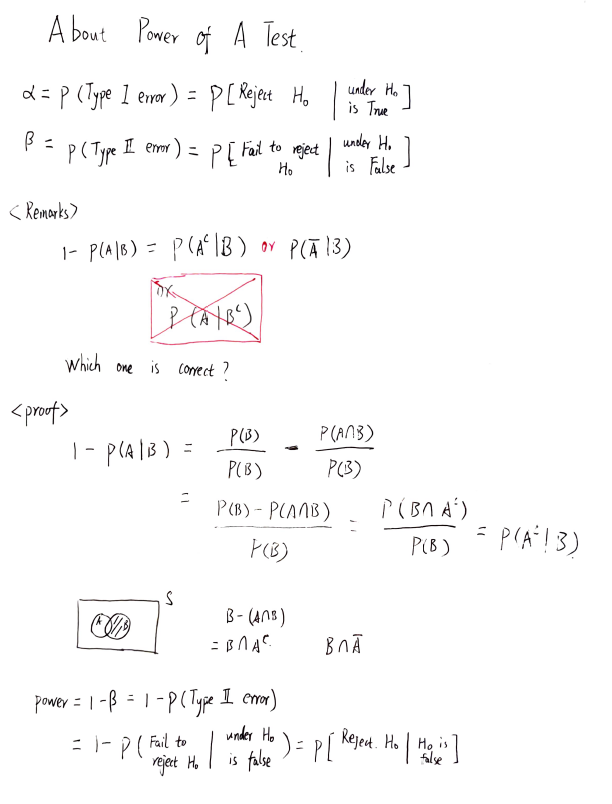 About Power of A Test.
α = P (Type I error) = P [ Reject H₀ | under H₀ is True ]
β = P (Type II error) = P [ Fail to reject H₀ | under H₀ is False ]
<Remarks>
1 - P(A|B) = P(Aᶜ|B) or P(A̅|B)
or
P (A|Bᶜ)
Which one is correct?
<proof>
1 - P(A|B) = P(B)/P(B) - P(A∩B)/P(B)
= (P(B) - P(A∩B))/P(B) = P(B∩Aᶜ)/P(B) = P(Aᶜ|B)
S
A B
B - (A∩B)
= B∩Aᶜ B∩A̅
power = 1-β = 1-P(Type II error)
= 1- P ( Fail to reject H₀ | under H₀ is false ) = P [ Reject H₀ | H₀ is false ]